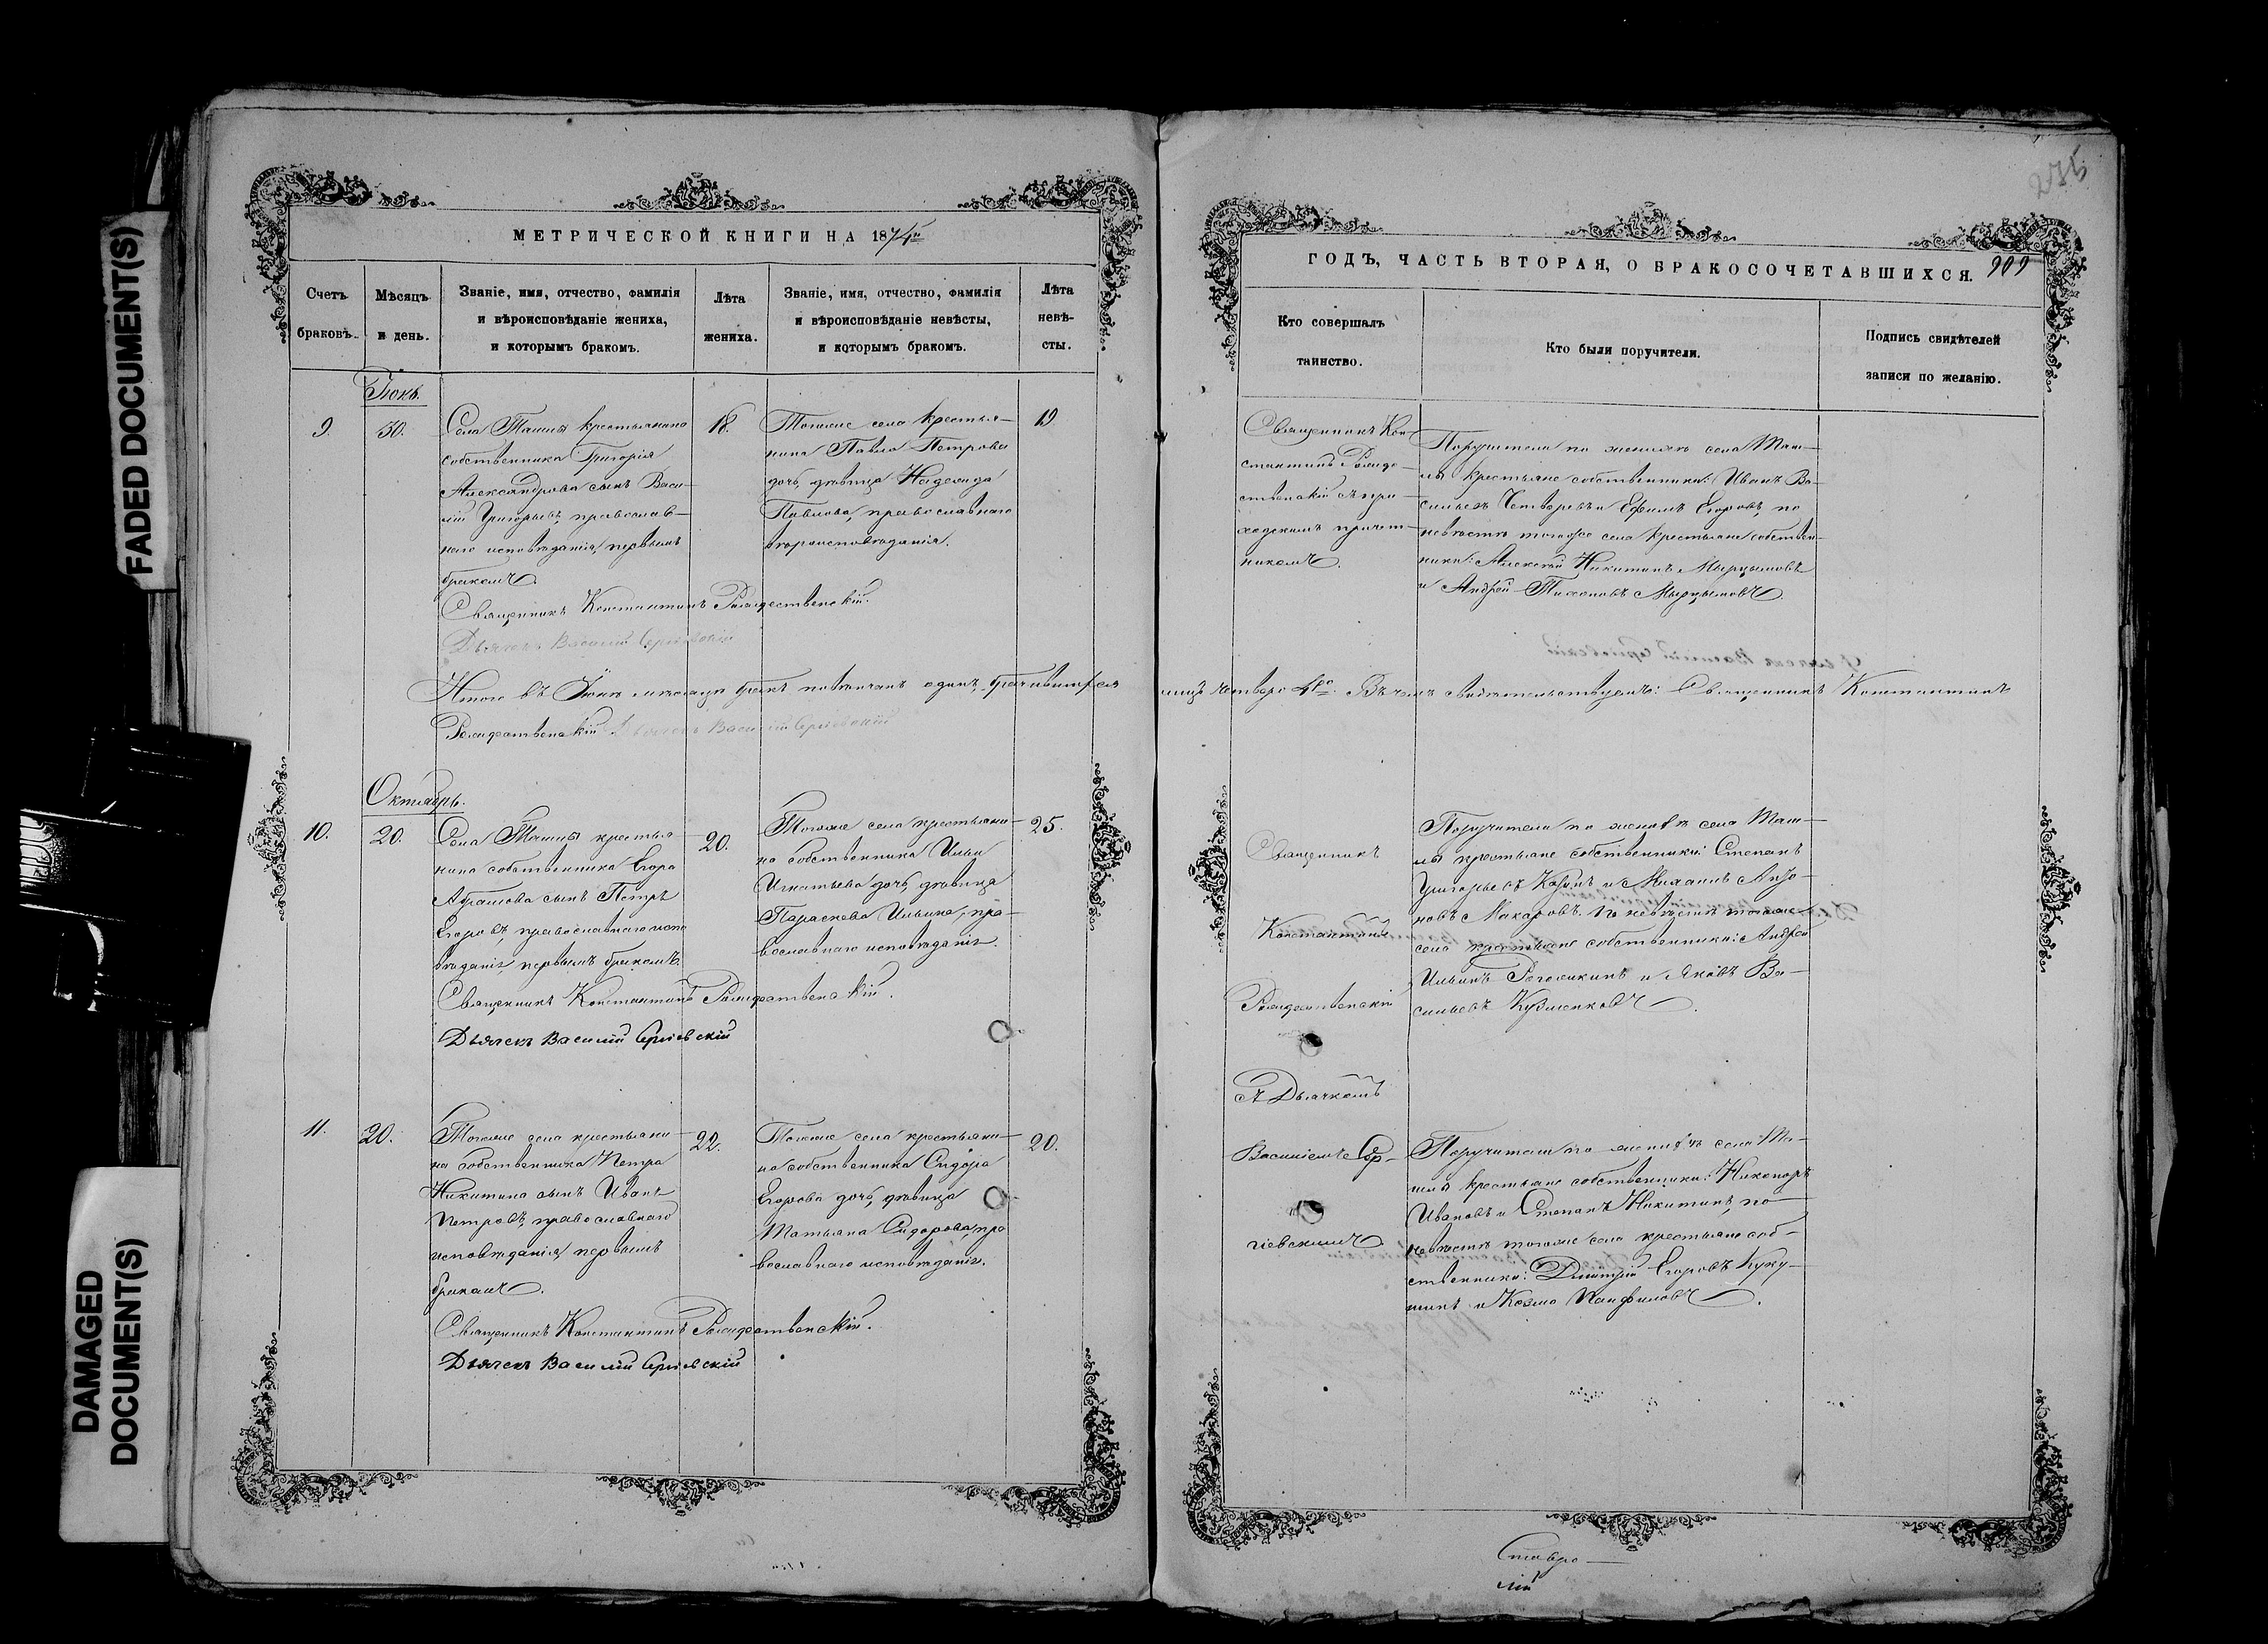 FADED DOCUMENT(S)
DAMAGED
DOCUMENT(S)
МЕТРИЧЕСКОЙ КНИГИ НА 187
Счетъ
браковъ.
Мѣсяцъ
и день.
Званіе, имя, отчество, фамилія
и вѣроисповѣданіе жениха,
и которымъ бракомъ.
Лѣта
жениха.
Званіе, имя, отчество, фамилія
и вѣроисповѣданіе невѣсты,
и которымъ бракомъ.
Лѣта
невѣ-
сты.
9.
30.
Села крестьянина
собственника Григорія
Александрова сынъ Васи-
лій Григорьевъ, православ-
наго исповѣданія, первымъ
бракомъ.
18.
Тогоже села крестья-
нина Павла Петрова
дочь, дѣвица Надежда
Павлова, православнаго
вѣроисповѣданія.
19
Священникъ Константинъ Рождественскій.
Дьячекъ Василій Сергіевскій
Итого въ мѣсяцѣ бракъ повѣнчанъ одинъ,
Рождественскій Дьячекъ Василій Сергіевскій
Октябрь.
10.
20.
Села крестья-
нина собственника Егора
Абрамова сынъ Петръ
Егоровъ, православнаго испо
вѣданія, первымъ бракомъ.
20.
Тогоже села крестьяни-
на собственника Ильи
Игнатьева дочь, дѣвица
Параскева Ильина, пра-
вославнаго исповѣданія.
25.
Священникъ Константинъ Рождественскій.
Дьячекъ Василій Сергіевскій
11.
20.
Тогоже села крестьяни-
на собственника Петра
Никитина сынъ Иванъ
Петровъ, православнаго
исповѣданія, первымъ
бракомъ.
22.
Тогоже села крестьяни-
на собственника Сидора
Егорова дочь, дѣвица
Татьяна Сидорова, пра
вославнаго исповѣданія.
20.
Священникъ Константинъ Рождественскій.
Дьячекъ Василій Сергіевскій
275
ГОДЪ, ЧАСТЬ ВТОРАЯ, О БРАКОСОЧЕТАВШИХСЯ.
909
Кто совершалъ
таинство.
Кто были поручители.
Подпись свидѣтелей
записи по желанію.
Священникъ Кон-
стантинъ Рожде-
ственскій съ при-
ходскимъ причет-
никомъ.
Поручители по женихѣ села
крестьяне собственники: Иванъ Ва-
сильевъ и Ефимъ Егоровъ, по
невѣстѣ тогоже села крестьяне собствен-
ники: Алексѣй Никитинъ
и Андрей Тихоновъ
Въ чемъ свидѣтельствуемъ: Священникъ Константинъ
Священникъ
Константинъ
Рождественскій
съ Дьячкомъ
Василіемъ Сер-
гіевскимъ
Поручители по женихѣ села
крестьяне собственники: Степанъ
Григорьевъ и Михаилъ
Макаровъ. по невѣстѣ тогоже
села крестьяне собственники: Андрей
Ильинъ и Яковъ Ва-
сильевъ Кузменковъ.
Поручители по женихѣ села
крестьяне собственники: Никоноръ
Ивановъ и Степанъ Никитинъ, по
невѣстѣ тогоже села крестьяне соб-
ственники: Дмитрій Егоровъ
и Козма Панфиловъ.
Ставро-